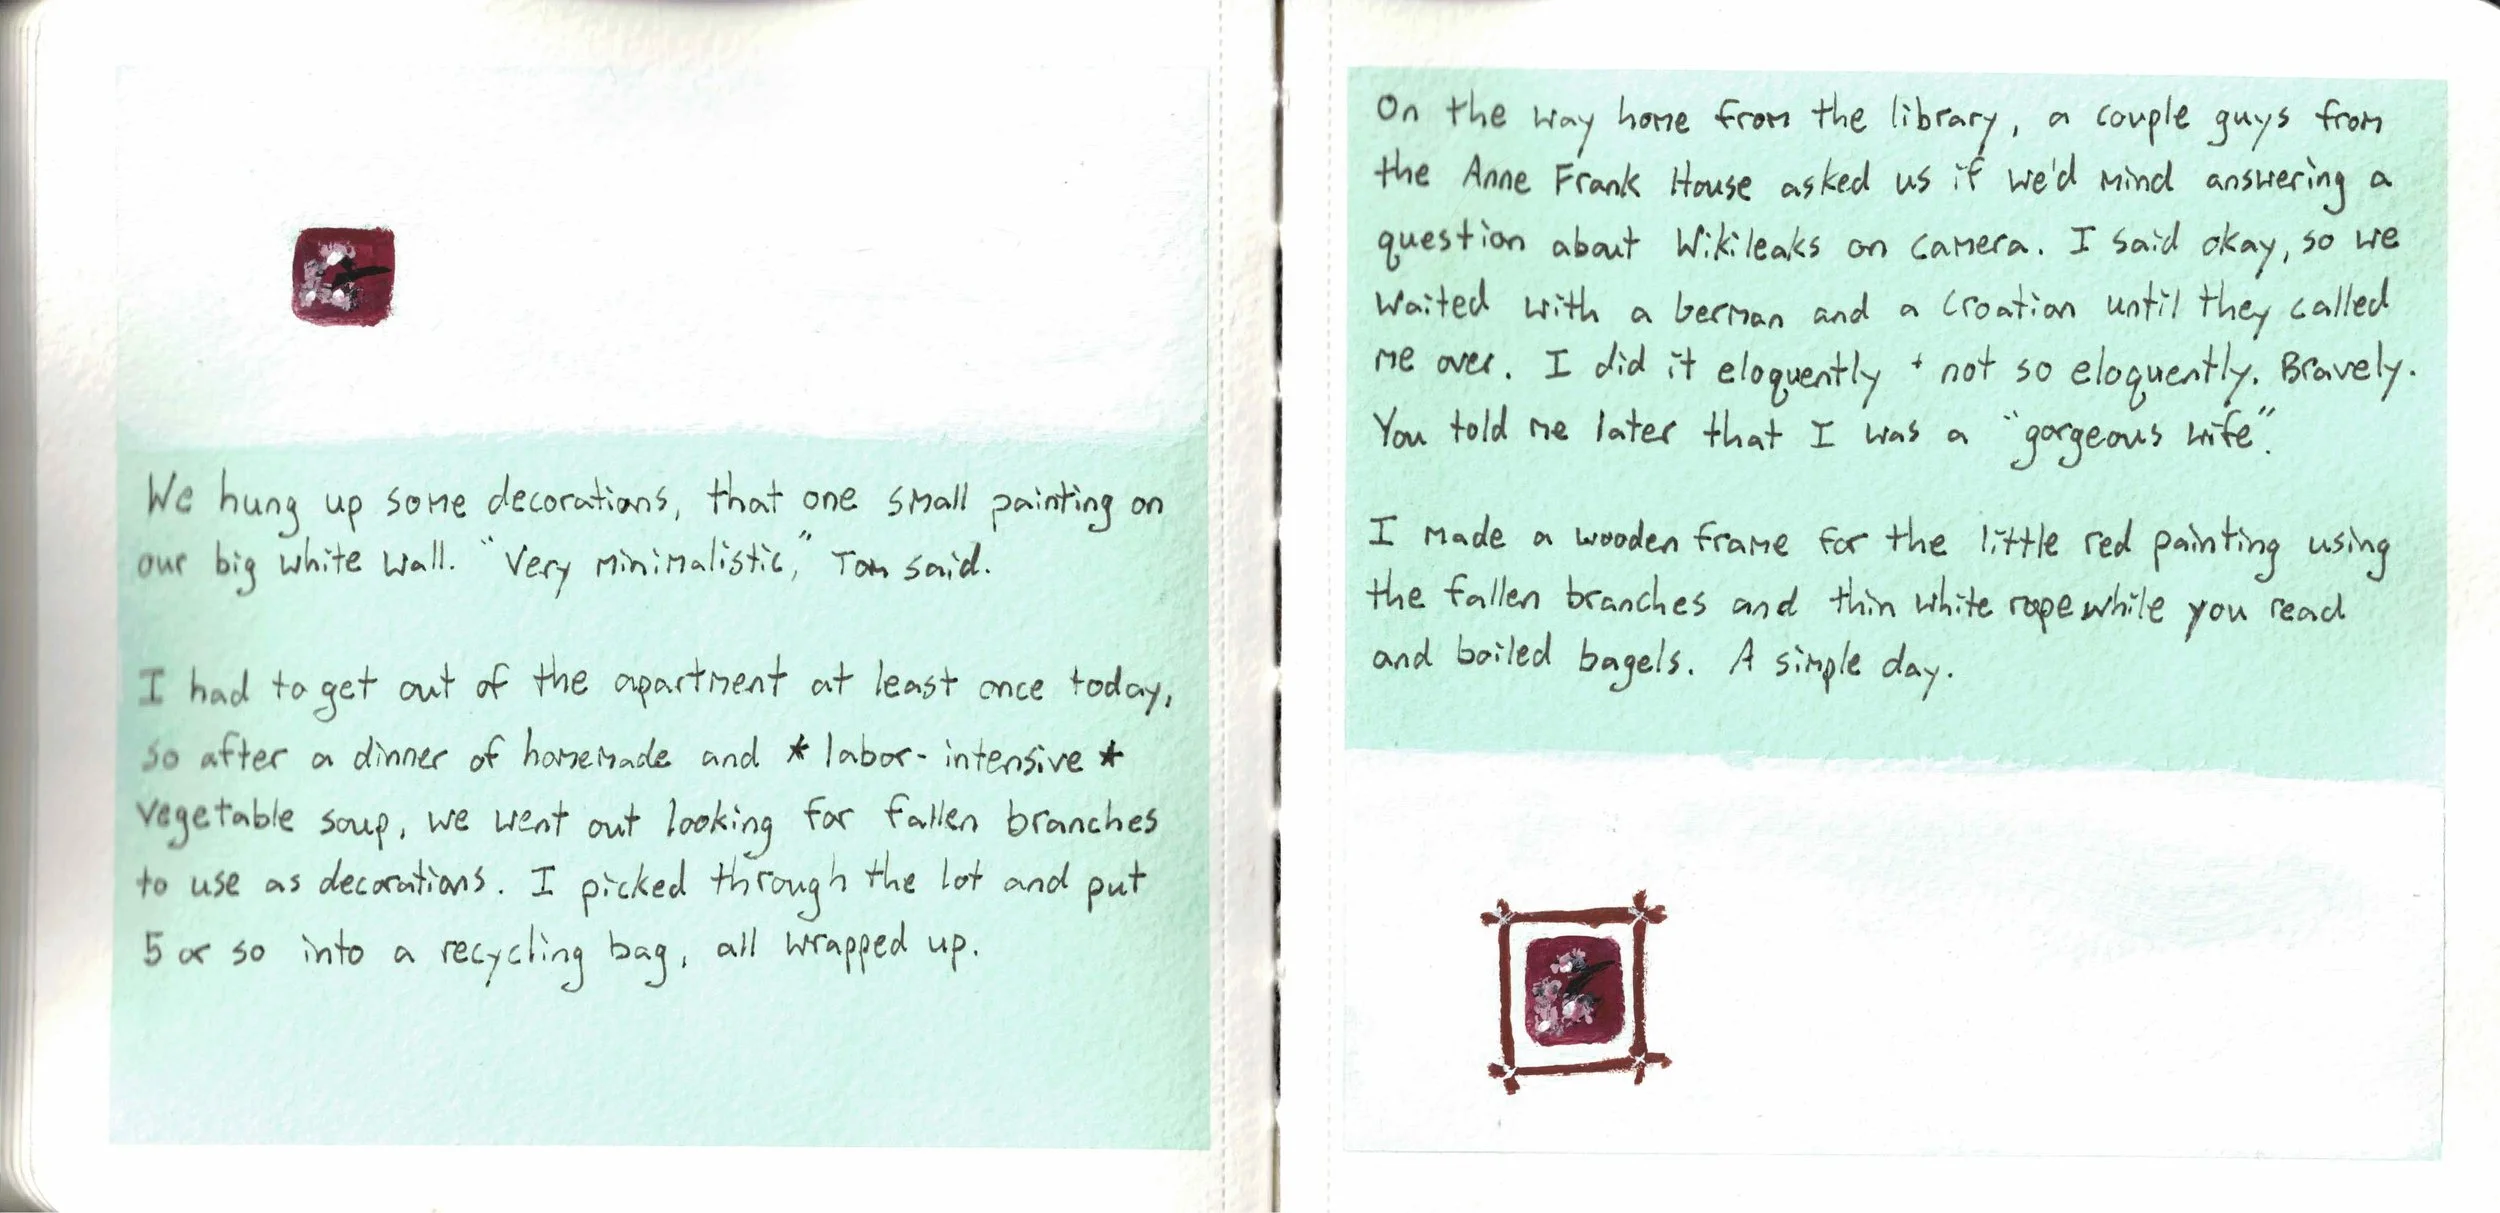 We hung up some decorations, that one small painting on
our big white wall. "Very minimalistic," Tom said.
I had to get out of the apartment at least once today,
so after a dinner of homemade and * labor-intensive *
vegetable soup, we went out looking for fallen branches
to use as decorations. I picked through the lot and put
5 or so into a recycling bag, all wrapped up.
On the way home from the library, a couple guys from
the Anne Frank House asked us if we'd mind answering a
question about Wikileaks on camera. I said okay, so we
waited with a German and a Croatian until they called
me over. I did it eloquently + not so eloquently. Bravely.
You told me later that I was a "gorgeous wife".
I made a wooden frame for the little red painting using
the fallen branches and thin white rope while you read
and boiled bagels. A simple day.